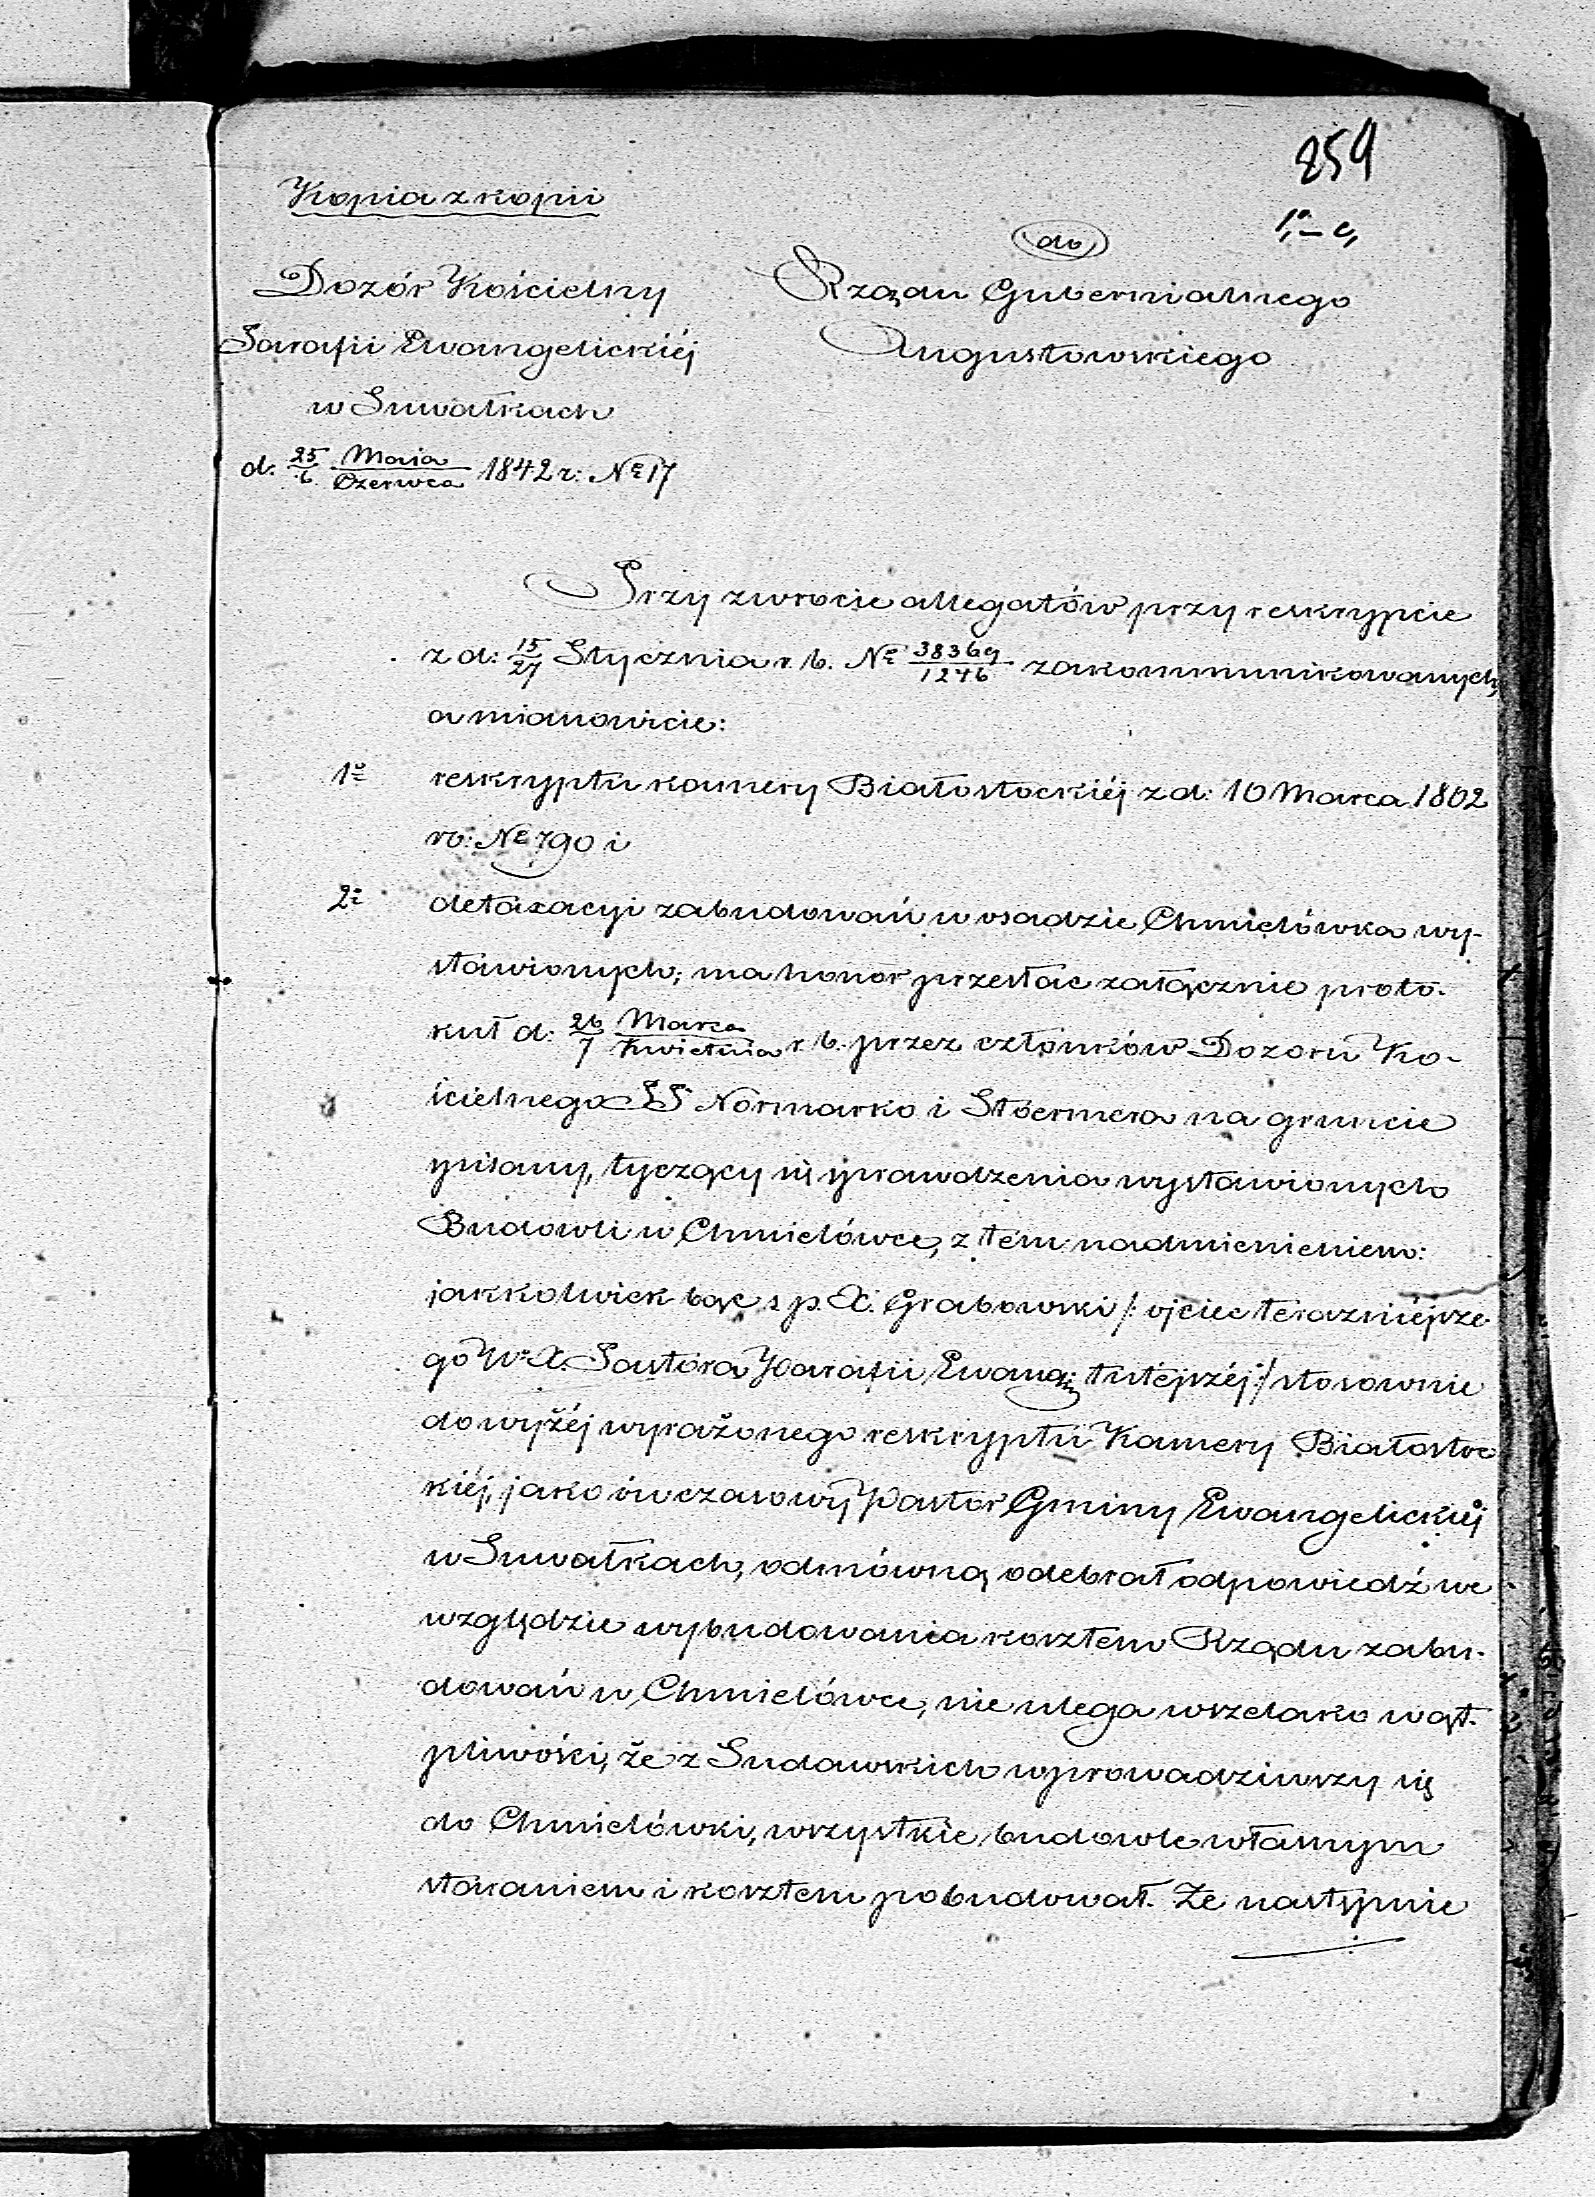 259
1,º – c,
Kopia z kopii
do
Dozór Kościelny
Parafii Ewangelickiéj
w Suwałkach
d. 25/6 Maja/Czerwca 1842 r: Nº 17
Rządu Gubernialnego
Augustowskiego
Przy zwrocie allegatów przy reskrypcie
z d: 15/27 Stycznia r. b. Nº 38369/1246 zakommunikowanych,
a mianowicie:
1º reskryptu kamery Białostockiéj z d: 10 Marca 1802
ro: Nº 790 i
2º detaxacyi zabudowań w osadzie Chmielówka wy-
stawionych, ma honor przesłać załącznie proto-
kuł d: 26/7 Marca/Kwietnia r. b. przez członków Dozoru Ko-
ścielnego PP Normarko i Stoermera na gruncie
spisany, tyczący się sprawdzenia wystawionych
Budowli w Chmielówce, z tem nadmienieniem:
jakkolwiek bąć s p. X. Grabowski /: ojciec teraźniéjsze-
go Wº X. Pastora Parafii Ewang: tutéjszéj :/ stosownie
do wyżéj wyrażonego reskryptu Kamery Białostoc
kiéj, jako ówczasowy Pastor Gminy Ewangelickiéj
w Suwałkach, odmówną odebrał odpowiedź we
względzie wybudowania kosztem Rządu zabu-
dowań w Chmielówce, nie ulega wszelako wąt-
pliwości, że z Sudawskich wprowadziwszy się
do Chmielówki, wszystkie budowle własnym
staraniem i kosztem pobudował. Że następnie